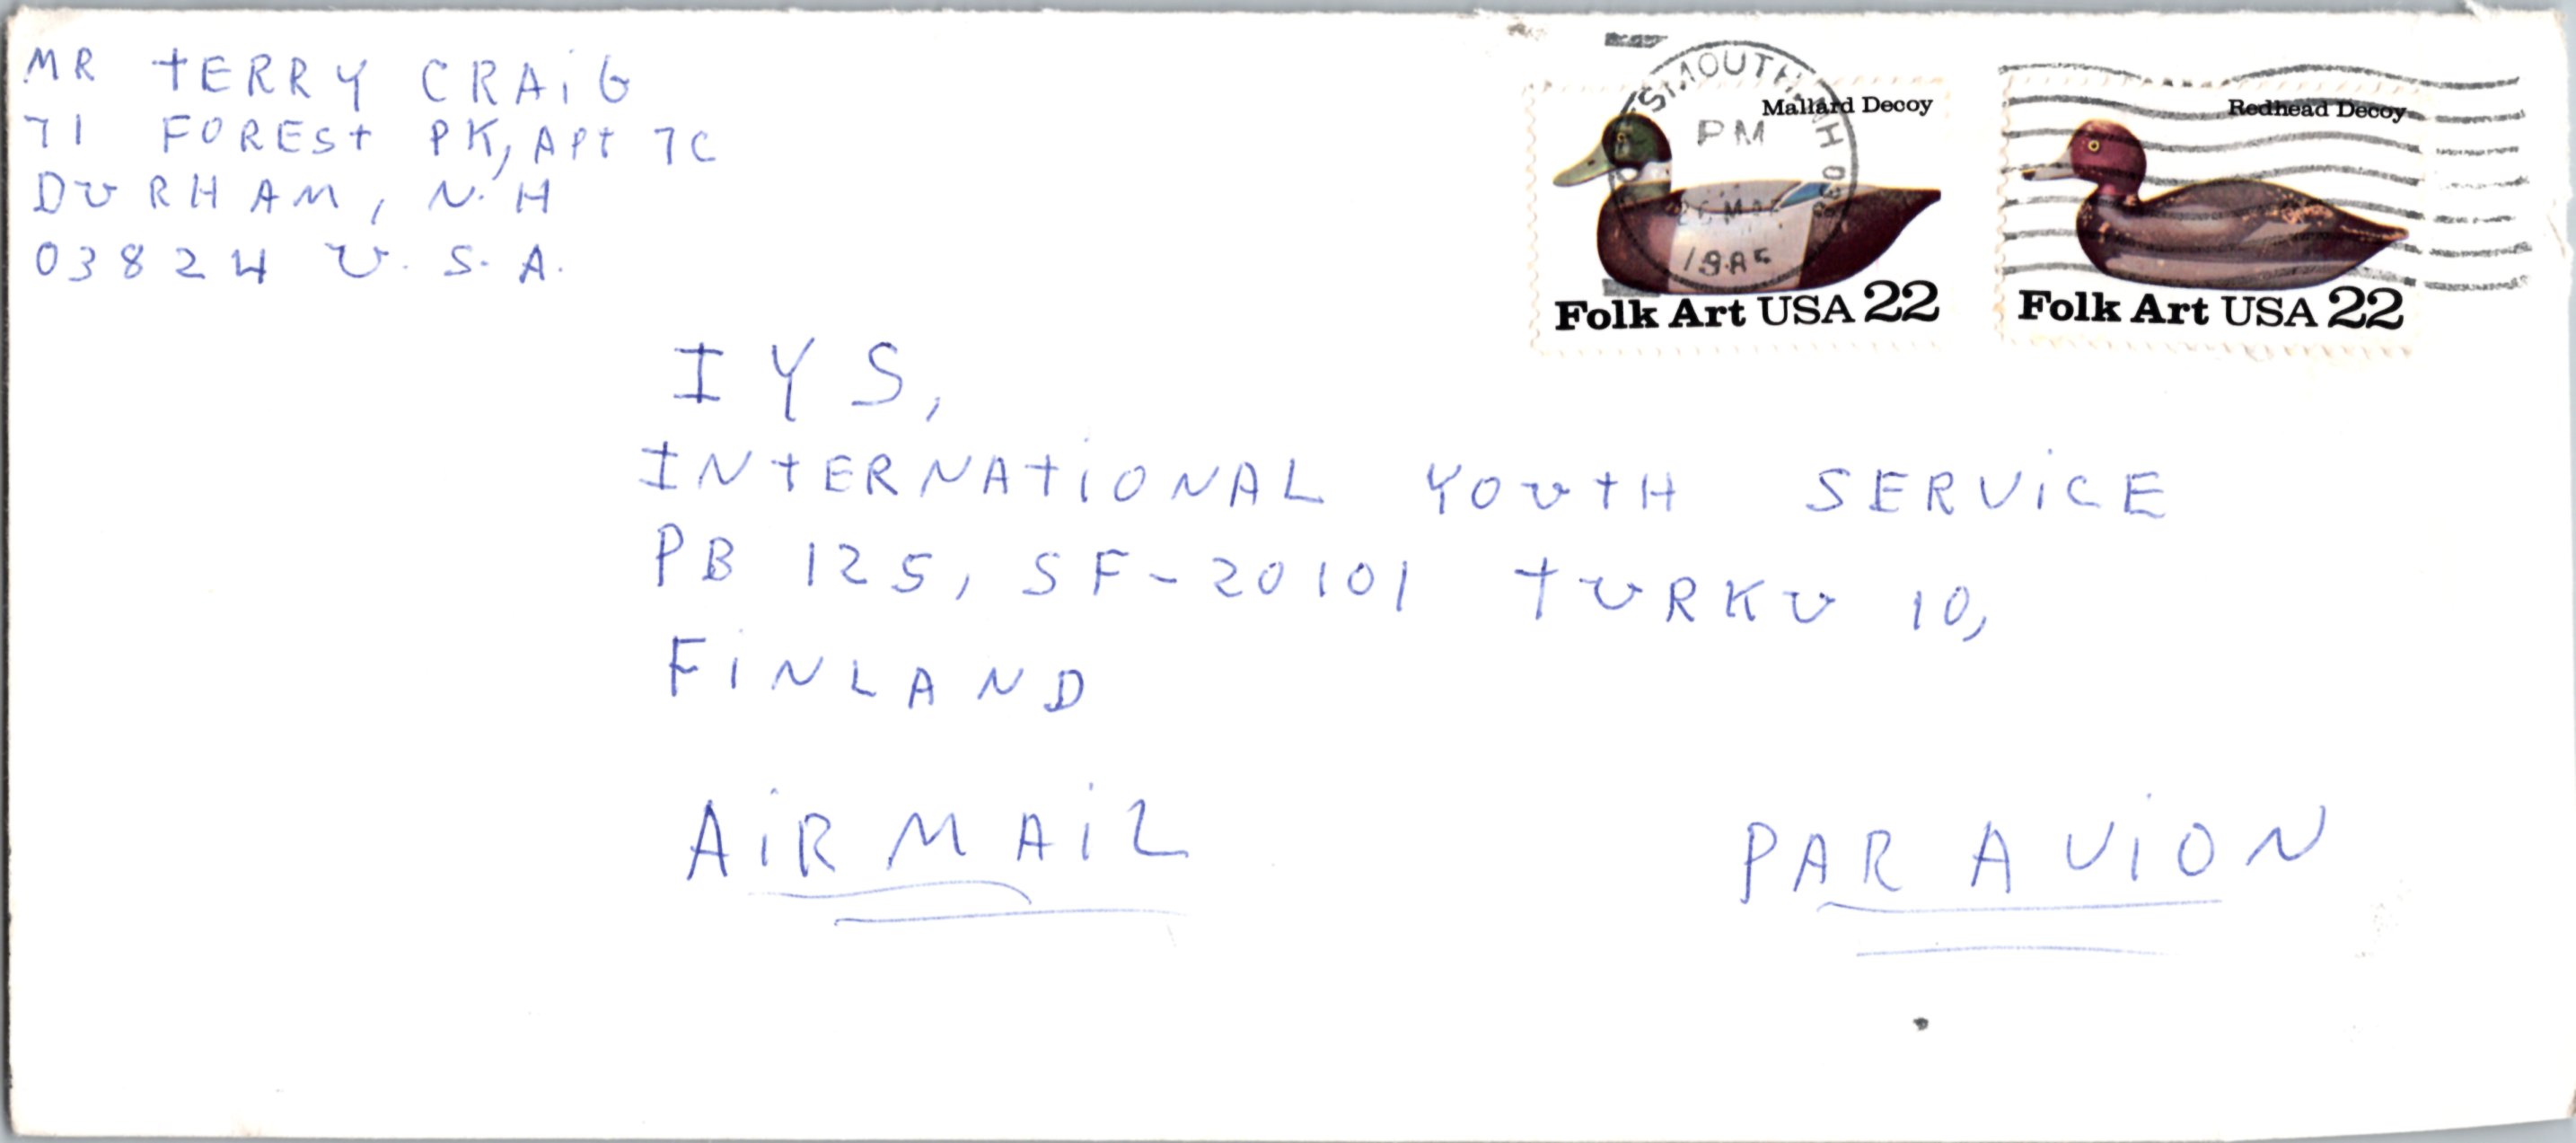 MR TERRY CRAIG
71 FOREST PK, APT 7C
DURHAM, N.H
03824 U.S.A.
SMOUTH, NH 038
PM
1985
Mallard Decoy
Folk Art USA 22
Redhead Decoy
Folk Art USA 22
IYS,
INTERNATIONAL YOUTH SERVICE
PB 125, SF-20101 TURKU 10,
FINLAND
AIR MAIL
PAR AVION